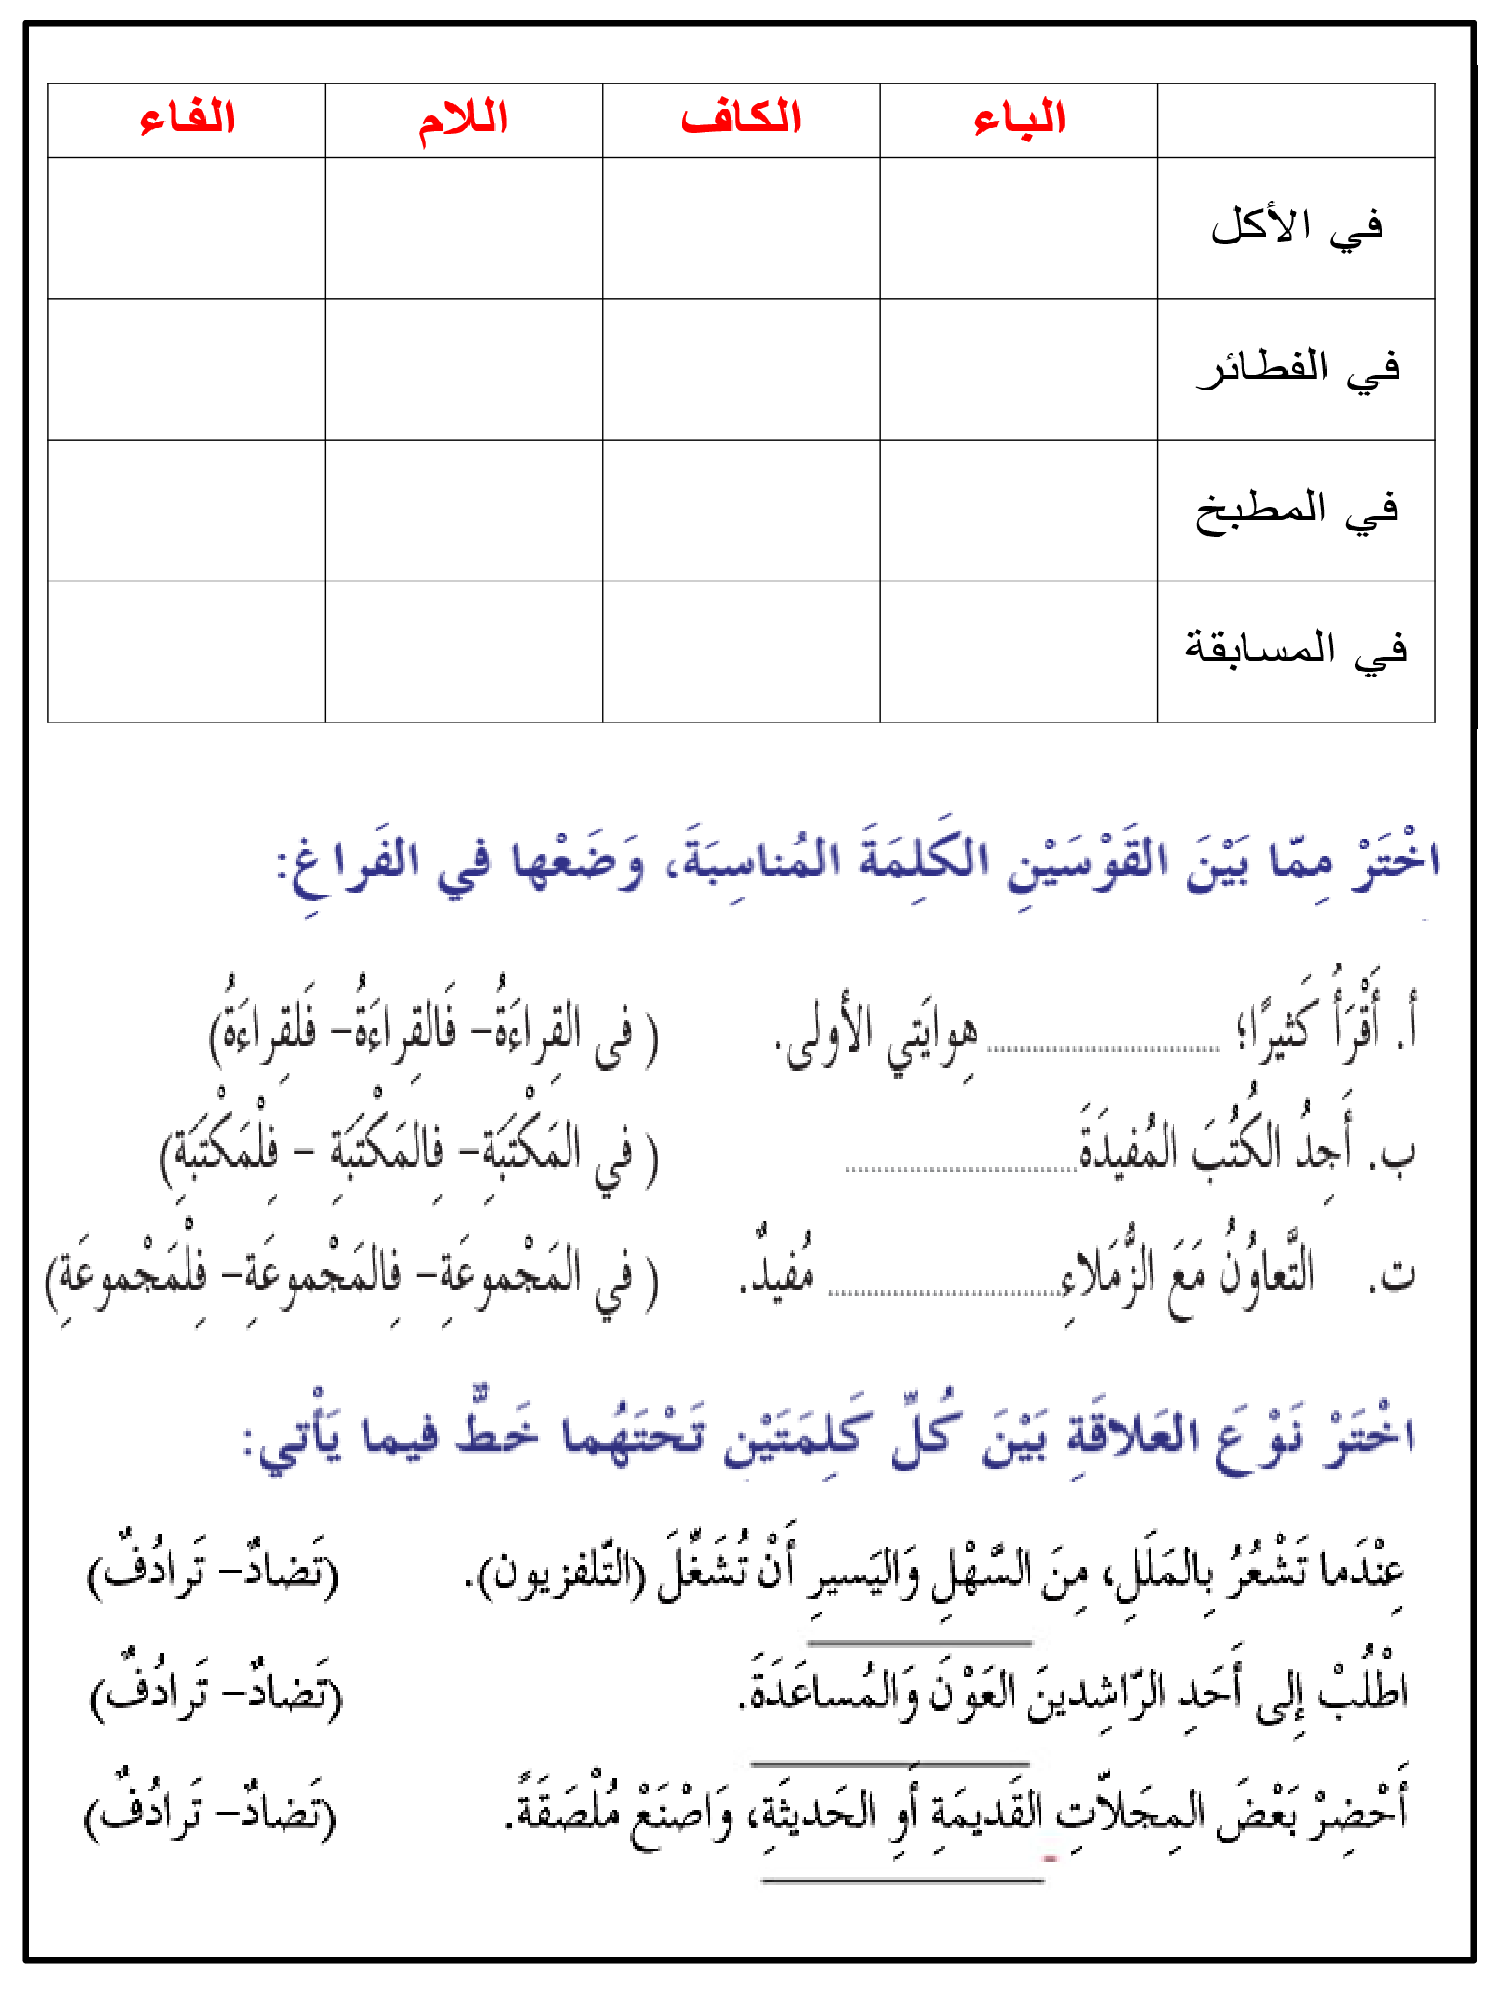 الباء الكاف اللام الفاء
في الأكل
في الفطائر
في المطبخ
في المسابقة
اخْتَرْ مِمّا بَيْنَ القَوْسَيْنِ الكَلِمَةَ المُناسِبَةَ، وَضَعْها في الفَراغِ:
أ. أَقْرَأُ كَثيرًا؛ .............................. هِوايَتي الأَولى. ( فى القِراءَةُ- فَالقِراءَةُ- فَلقِراءَةُ)
ب. أَجِدُ الكُتُبَ المُفيدَةَ.............................. ( في المَكْتَبَةِ- فِالمَكْتَبَةِ - فِلْمَكْتَبَةِ)
ت. التَّعاوُنُ مَعَ الزُّمَلاءِ.............................. مُفيدٌ. ( في المَجْموعَةِ- فِالمَجْموعَةِ- فِلْمَجْموعَةِ)
اخْتَرْ نَوْعَ العَلاقَةِ بَيْنَ كُلِّ كَلِمَتَيْنِ تَحْتَهُما خَطٌّ فيما يَأْتي:
عِنْدَما تَشْعُرُ بِالمَلَلِ، مِنَ السَّهْلِ وَاليَسيرِ أَنْ تُشَغِّلَ (التّلفزيون). (تَضادٌ- تَرادُفٌ)
اطْلُبْ إِلى أَحَدِ الرّاشِدينَ العَوْنَ وَالمُساعَدَةَ. (تَضادٌ- تَرادُفٌ)
أَحْضِرْ بَعْضَ المِجَلاّتِ القَديمَةِ أَوِ الحَديثَةِ، وَاصْنَعْ مُلْصَقَةً. (تَضادٌ- تَرادُفٌ)